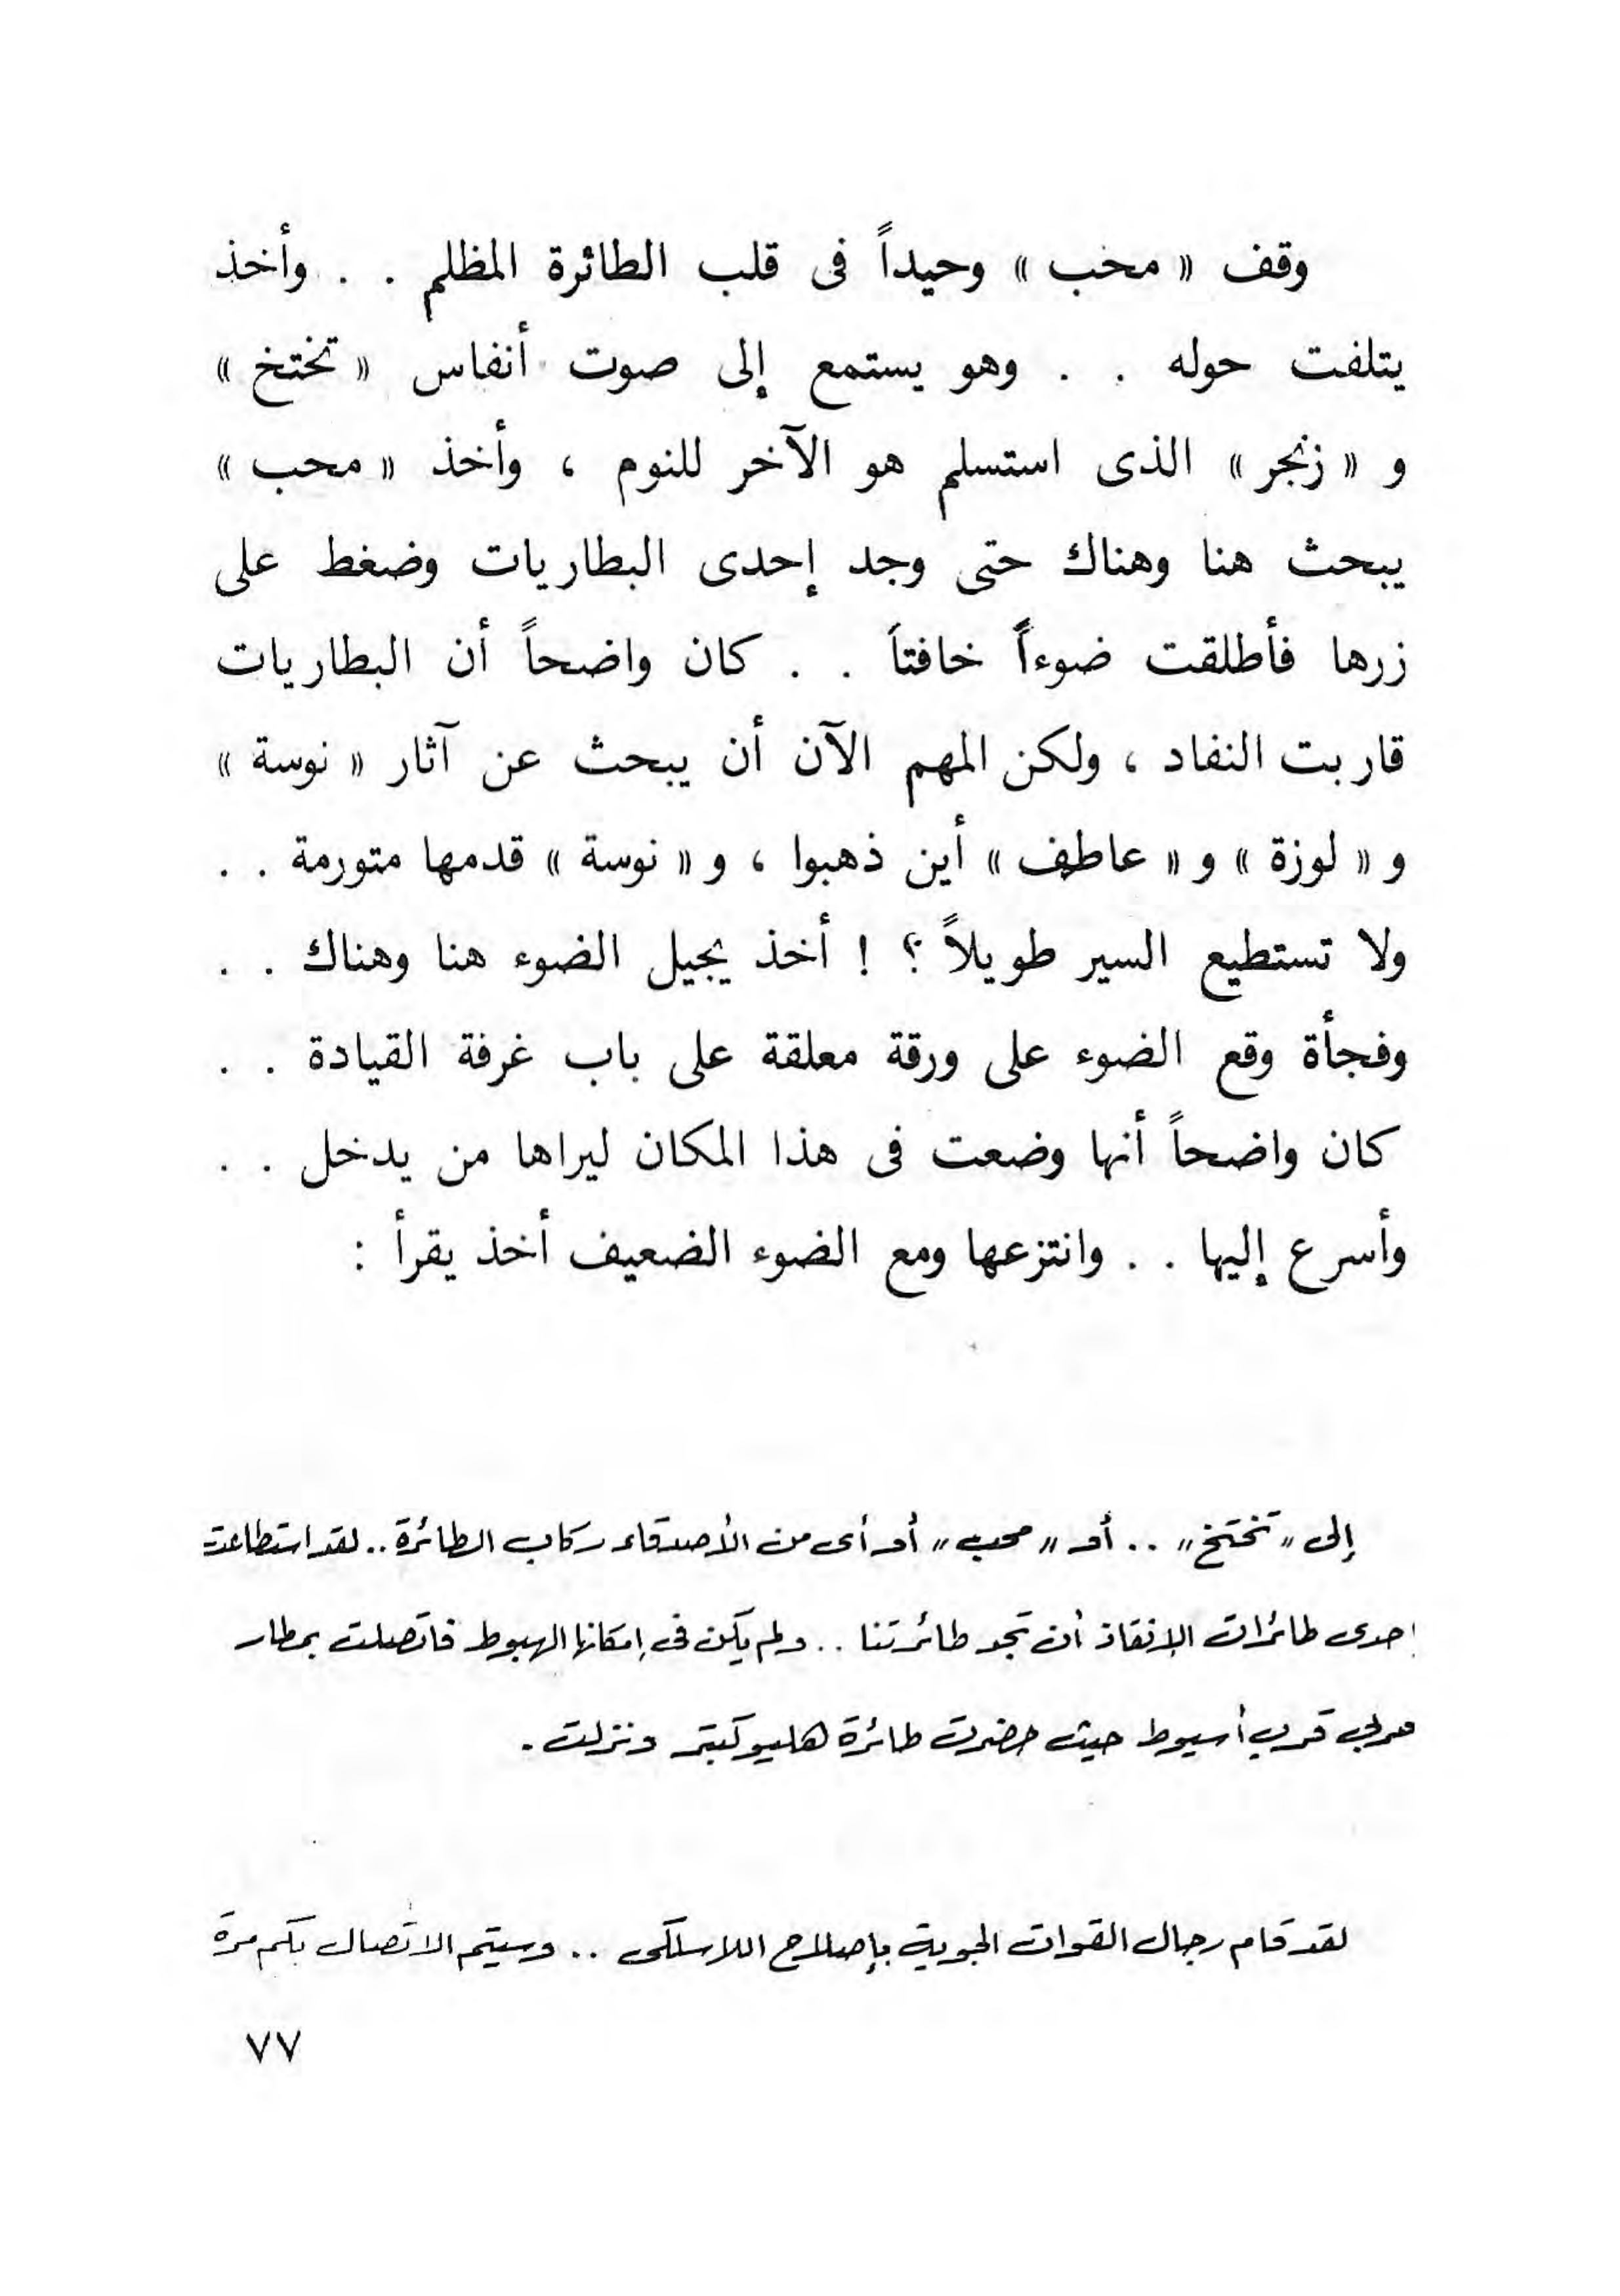 وقف « محب » وحيداً فى قلب الطائرة المظلم . . وأخذ
يتلفت حوله . . وهو يستمع إلى صوت أنفاس « تختخ »
و « زنجر » الذى استسلم هو الآخر للنوم ، وأخذ « محب »
يبحث هنا وهناك حتى وجد إحدى البطاريات وضغط على
زرها فأطلقت ضوءاً خافتاً . . كان واضحاً أن البطاريات
قاربت النفاد ، ولكن المهم الآن أن يبحث عن آثار « نوسة »
و « لوزة » و « عاطف » أين ذهبوا ، و « نوسة » قدمها متورمة . .
ولا تستطيع السير طويلاً ؟ ! أخذ يجيل الضوء هنا وهناك . .
وفجأة وقع الضوء على ورقة معلقة على باب غرفة القيادة . .
كان واضحاً أنها وضعت فى هذا المكان ليراها من يدخل . .
وأسرع إليها . . وانتزعها ومع الضوء الضعيف أخذ يقرأ :
إلى « تختخ » . . أو « محب » أو أى من الأصدقاء ركاب الطائرة . . لقد استطاعت
إحدى طائرات الإنقاذ أن تجد طائرتنا . . ولم يكن فى إمكانها الهبوط فاتصلت بمطار
حربى قرب أسيوط حيث حضرت طائرة هليوكبتر ونزلت .
لقد قام رجال القوات الجوية بإصلاح اللاسلكى . . وسيتم الاتصال بكم مرة
٧٧